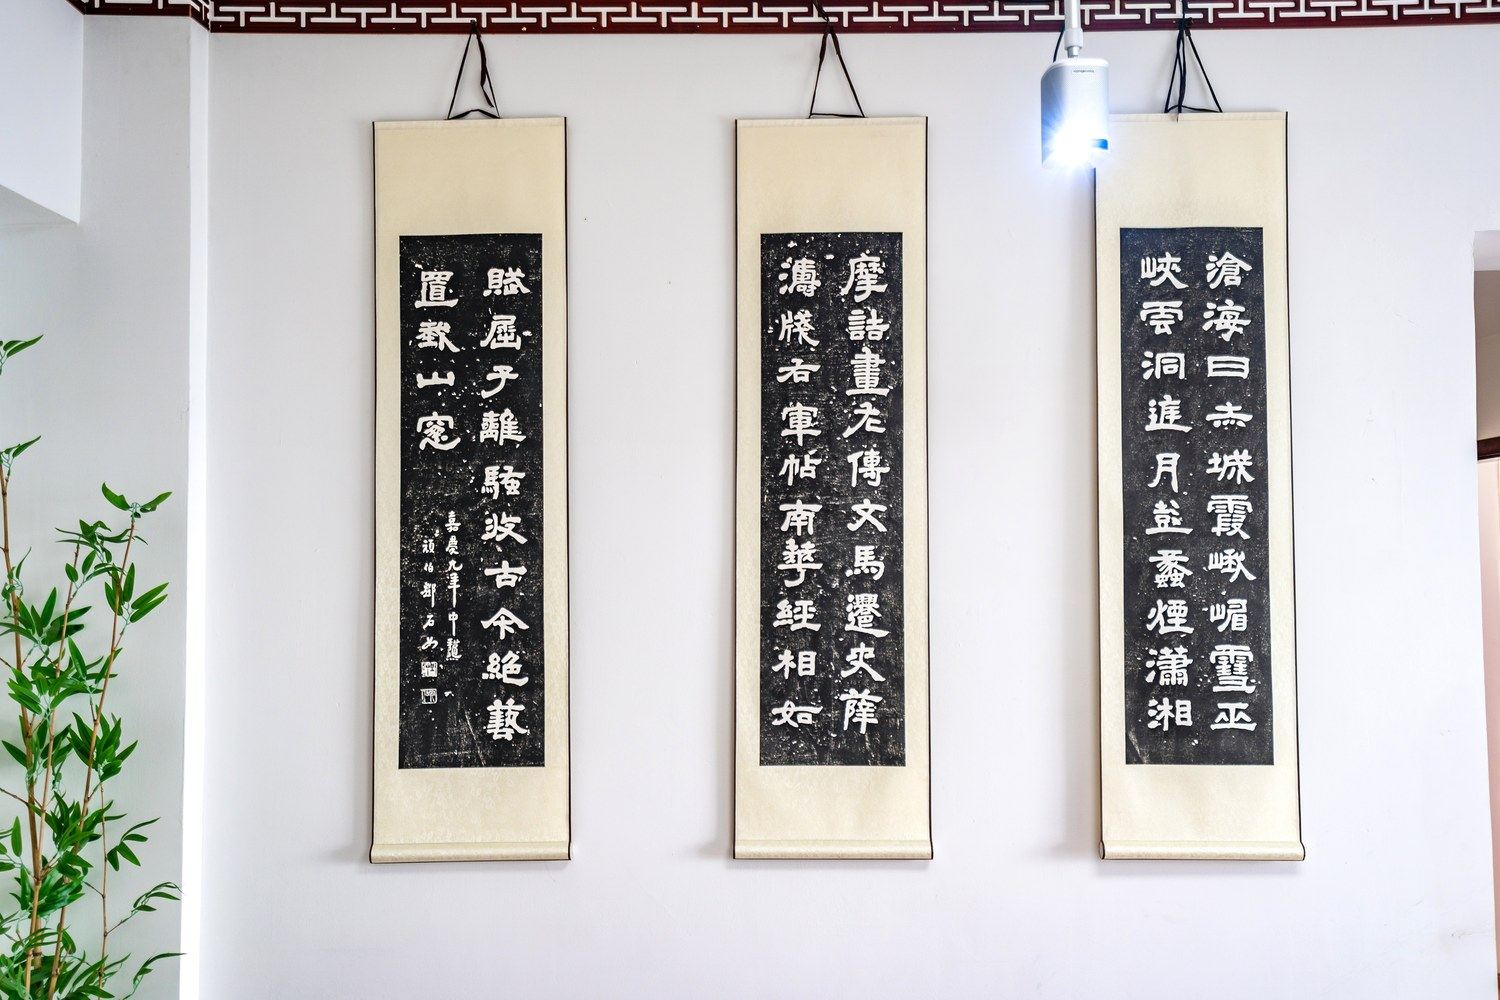 滄海日赤城霞峨嵋雪巫
峽雲洞庭月彭蠡煙瀟湘
摩詰畫左傳文馬遷史薛
濤牋右軍帖南華經相如
賦屈子離騷收古今絕藝
置我山窗
嘉慶九年中
頑伯鄧石如